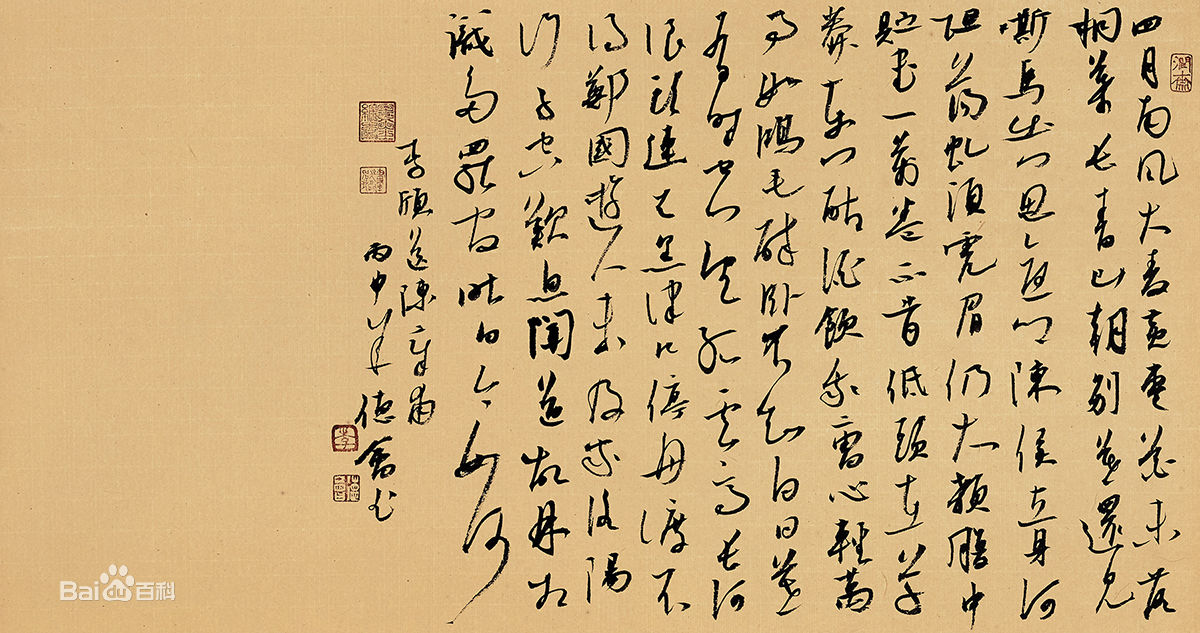 四月南風大麥黃棗花未落
桐葉長青山朝別暮還見
嘶馬出門思舊鄉陳侯立身何
坦蕩虬須虎眉仍大顙腹中
貯書一萬卷不肯低頭在草
莽東門酤酒飲我曹心輕萬
事如鴻毛醉卧不知白日暮
有時空望孤雲高長河
浪頭連天黑津口停舟渡不
得鄭國遊人未及家洛陽
行子空歎息聞道故林相
識多罷官昨日今如何
李頎送陳章甫
丙申年德書
Bai百科